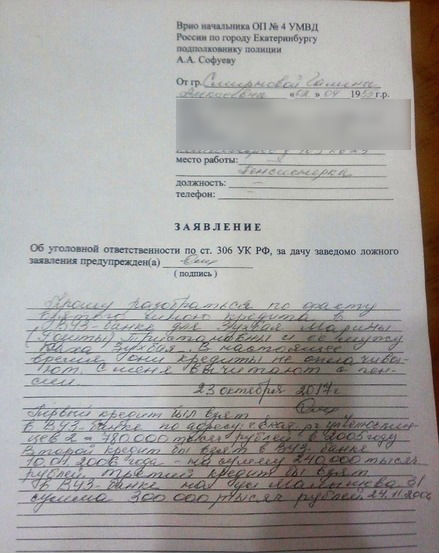 Врио начальника ОП № 4 УМВД
России по городу Екатеринбургу
подполковнику полиции
А.А. Софуеву
От гр. Смирновой Галины
04 19 г.р.
место работы:
Пенсионерка
должность: –
телефон: –
ЗАЯВЛЕНИЕ
Об уголовной ответственности по ст. 306 УК РФ, за дачу заведомо ложного
заявления предупрежден(а)
( подпись )
Прошу разобраться по факту
взятого мною кредита в
ВУЗ-банке для Марины
и её мужу
В настоящее
время они кредиты не оплачива-
ют. С меня высчитают с пен-
сии.
23 октября 2017 г
Первый кредит был взят
в ВУЗ-банке по адресу: г Екат.
2 = 780 000 тысяч рублей в 2005 году
Второй кредит был взят в ВУЗ банке
10.01 2006 года - на сумму 240 000 тысяч
рублей третий кредит был взят
в ВУЗ-банке на ул Малышева 31
сумма 300 000 тысяч рублей 24.11